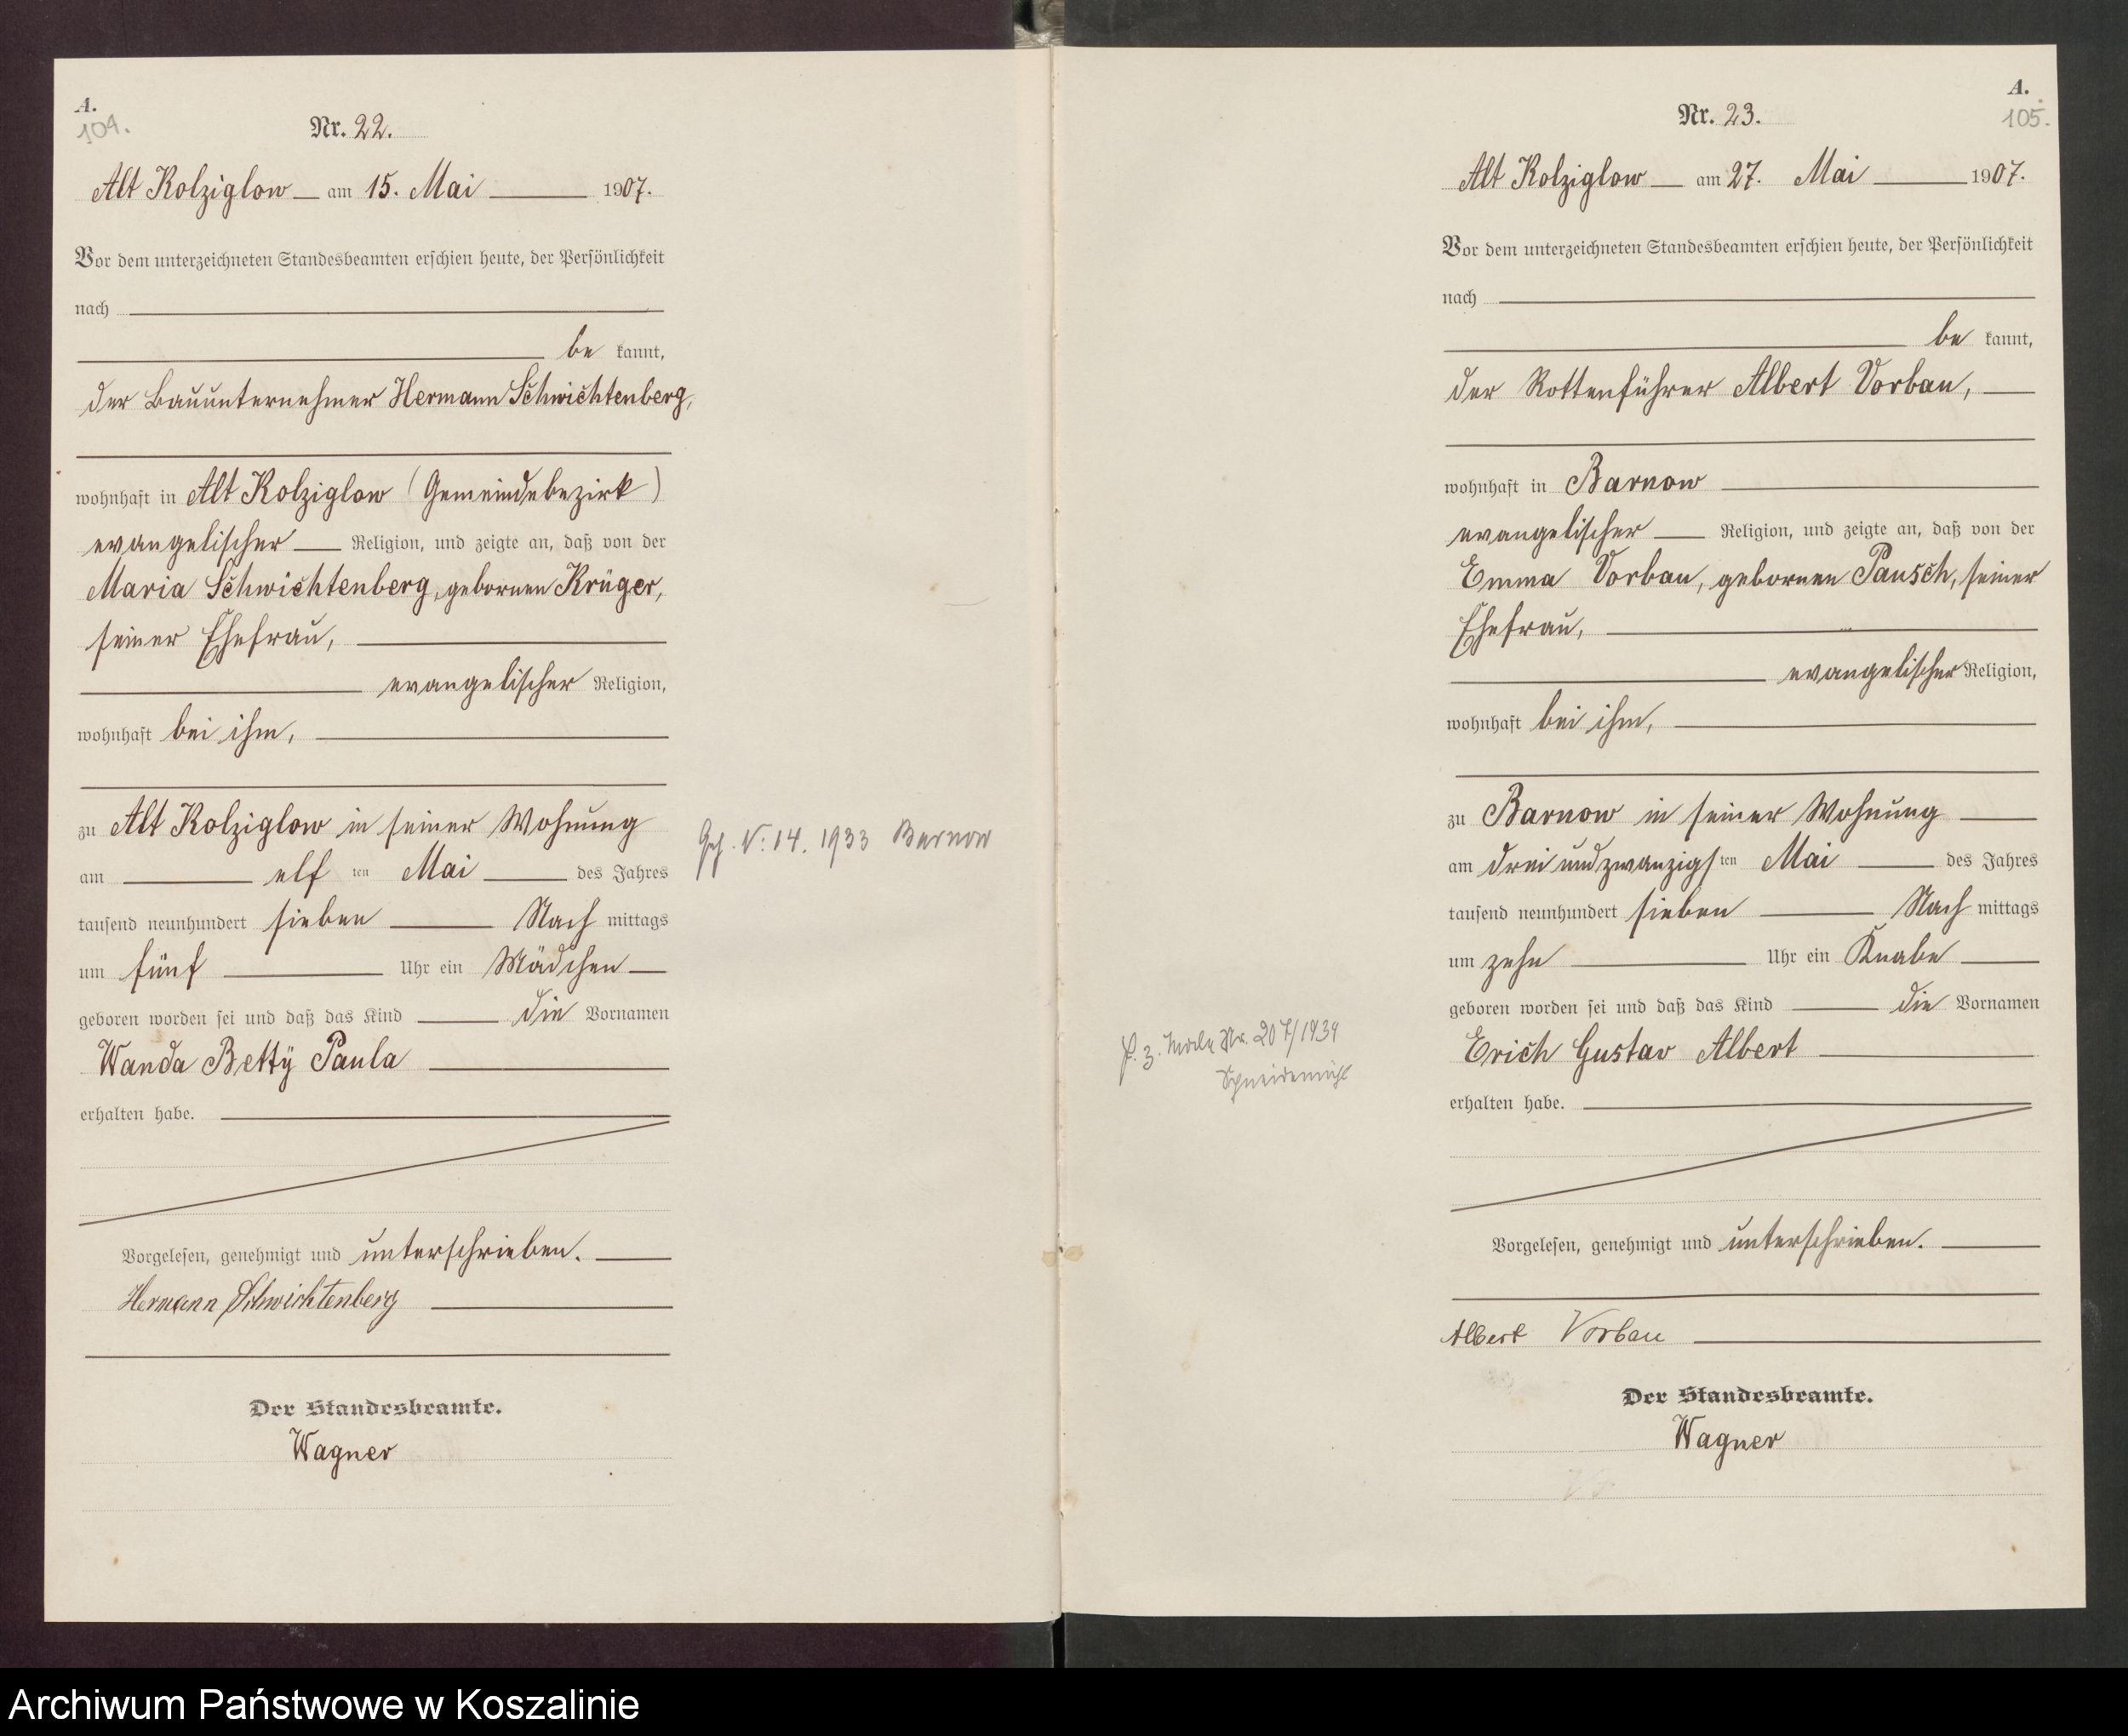 A.
104.
Nr. 22.
Alt Kolziglow am 15. Mai 1907.
Vor dem unterzeichneten Standesbeamten erschien heute, der Persönlichkeit
nach
be kannt,
der Bauunternehmer Hermann Schwichtenberg,
wohnhaft in Alt Kolziglow (Gemeindebezirk)
evangelischer Religion, und zeigte an, daß von der
Maria Schwichtenberg, gebornen Krüger,
seiner Ehefrau,
evangelischer Religion,
wohnhaft bei ihm,
zu Alt Kolziglow in seiner Wohnung
am elf ten Mai des Jahres
tausend neunhundert sieben Nach mittags
um fünf Uhr ein Mädchen
geboren worden sei und daß das Kind die Vornamen
Wanda Betty Paula
erhalten habe.
Vorgelesen, genehmigt und unterschrieben.
Hermann Schwichtenberg
Der Standesbeamte.
Wagner
14. 1933 Barnow
A.
105.
Nr. 23.
Alt Kolziglow am 27. Mai 1907.
Vor dem unterzeichneten Standesbeamten erschien heute, der Persönlichkeit
nach
be kannt,
der Rottenführer Albert Vorbau,
wohnhaft in Barnow
evangelischer Religion, und zeigte an, daß von der
Emma Vorbau, gebornen Pausch, seiner
Ehefrau,
evangelischer Religion,
wohnhaft bei ihm,
zu Barnow in seiner Wohnung
am drei und zwanzigs ten Mai des Jahres
tausend neunhundert sieben Nach mittags
um zehn Uhr ein Knabe
geboren worden sei und daß das Kind die Vornamen
Erich Gustav Albert
erhalten habe.
Vorgelesen, genehmigt und unterschrieben.
Albert Vorbau
Der Standesbeamte.
Wagner
Nr. 207/1934
Schneidemühl
Archiwum Państwowe w Koszalinie